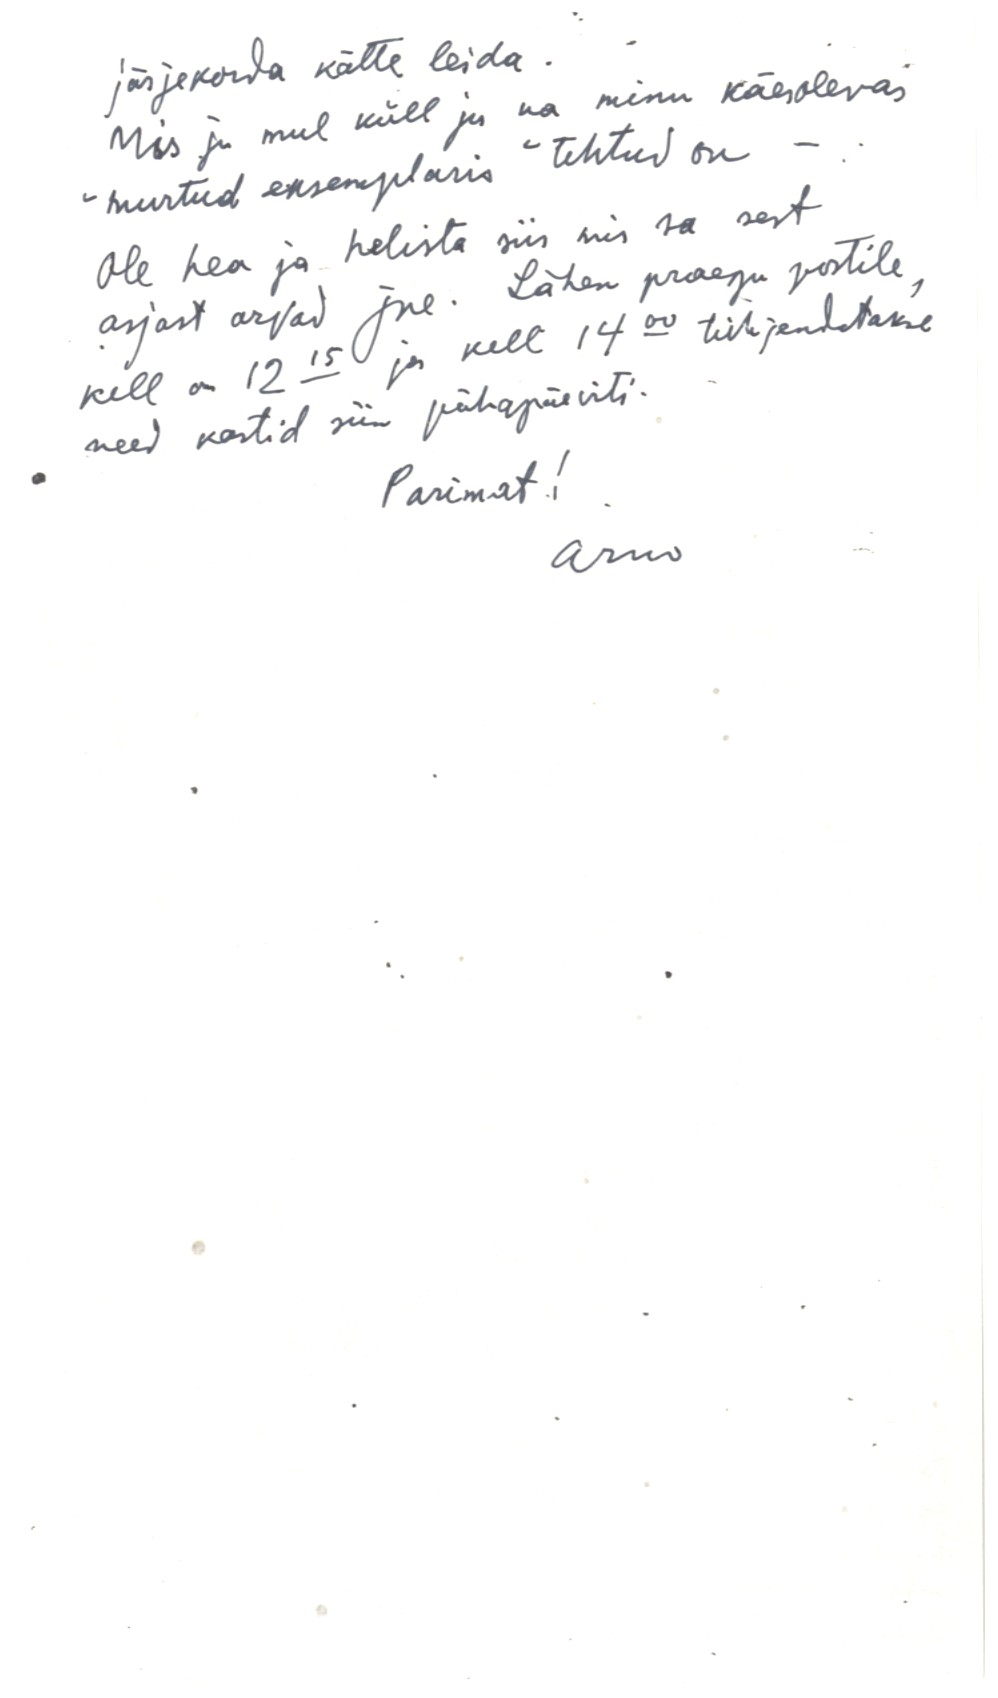 järjekorda kätte leida.
Mis ju mul küll ju ka minu käesolevas
"murtud eksemplaris" tehtud on –.
Ole hea ja helista siis mis sa sest
asjast arvad jne. Lähen praegu postile,
kell on 12 15 ja kell 14 00 tühjendatakse
need kastid siin pühapäeviti.
Parimat!
Arno